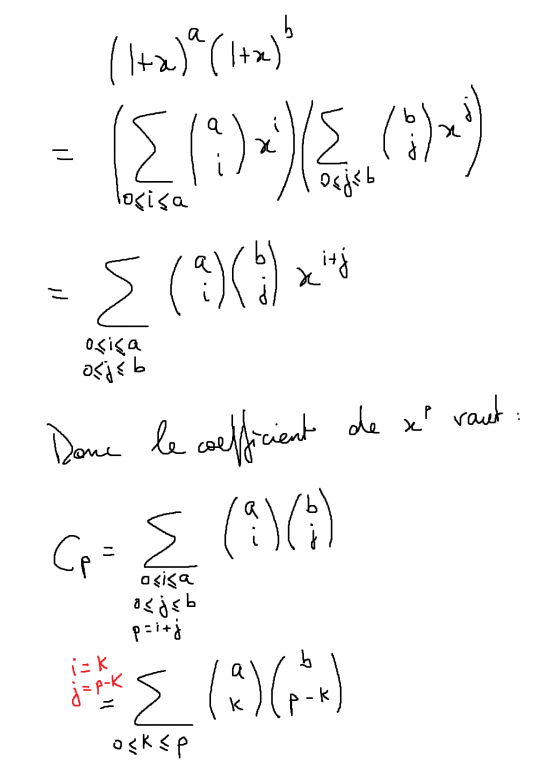 (1+x)^a (1+x)^b
= (∑_{0≤i≤a} (a i) x^i)(∑_{0≤j≤b} (b j) x^j)
= ∑_{0≤i≤a 0≤j≤b} (a i)(b j) x^{i+j}
Donc le coefficient de x^p vaut :
C_p = ∑_{0≤i≤a 0≤j≤b p=i+j} (a i)(b j)
i=k
j=p-k
= ∑_{0≤k≤p} (a k)(b p-k)